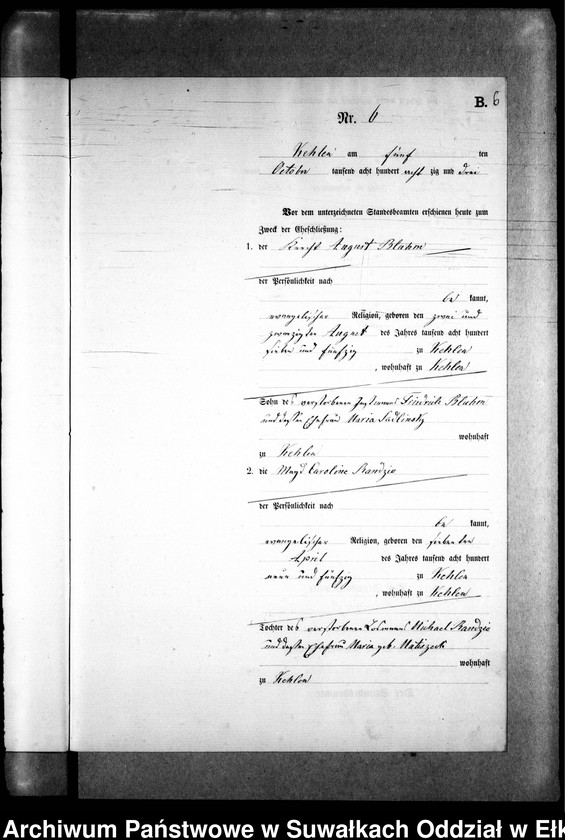 B. 6
Nr. 6
Kehlen am fünf ten
October tausend acht hundert acht zig und drei
Vor dem unterzeichneten Standesbeamten erschienen heute zum
Zweck der Eheschließung:
1. der Knecht August Bluhm
der Persönlichkeit nach
be kannt,
evangelischer Religion, geboren den zwei und
zwanzigsten August des Jahres tausend acht hundert
sieben und fünfzig zu Kehlen
, wohnhaft zu Kehlen
Sohn des verstorbenen Instmanns Bluhm
und dessen Ehefrau Maria
wohnhaft
zu Kehlen
2. die Magd Caroline Randzio
der Persönlichkeit nach
be kannt,
evangelischer Religion, geboren den siebenten
April des Jahres tausend acht hundert
neun und fünfzig zu Kehlen
, wohnhaft zu Kehlen
Tochter des verstorbenen Losmanns Michael Randzio
und dessen Ehefrau Maria geb.
wohnhaft
zu Kehlen
Archiwum Państwowe w Suwałkach Oddział w Ełk